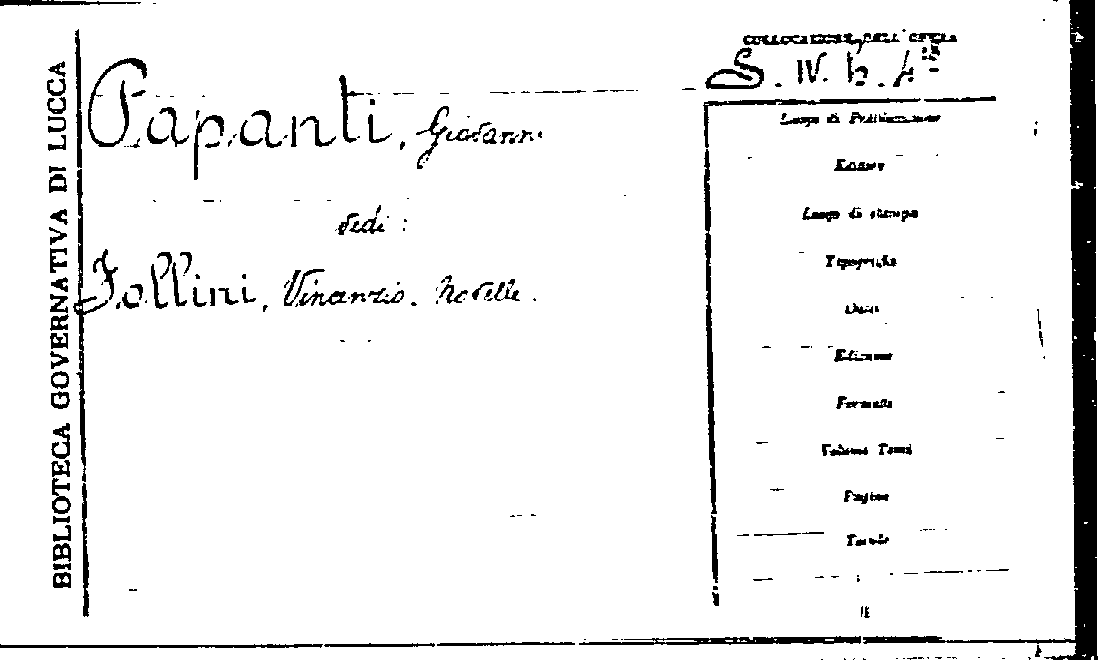 BIBLIOTECA GOVERNATIVA DI LUCCA
COLLOCAZIONE DELL'OPERA
S. IV. b. 4
Papanti, Giovanni
vedi:
Follini, Vinanzio. Novelle.
Luogo di Pubblicazione
Editore
Luogo di stampa
Tipografia
Data
Edizione
Formato
Volume Tomi
Pagine
Tavole